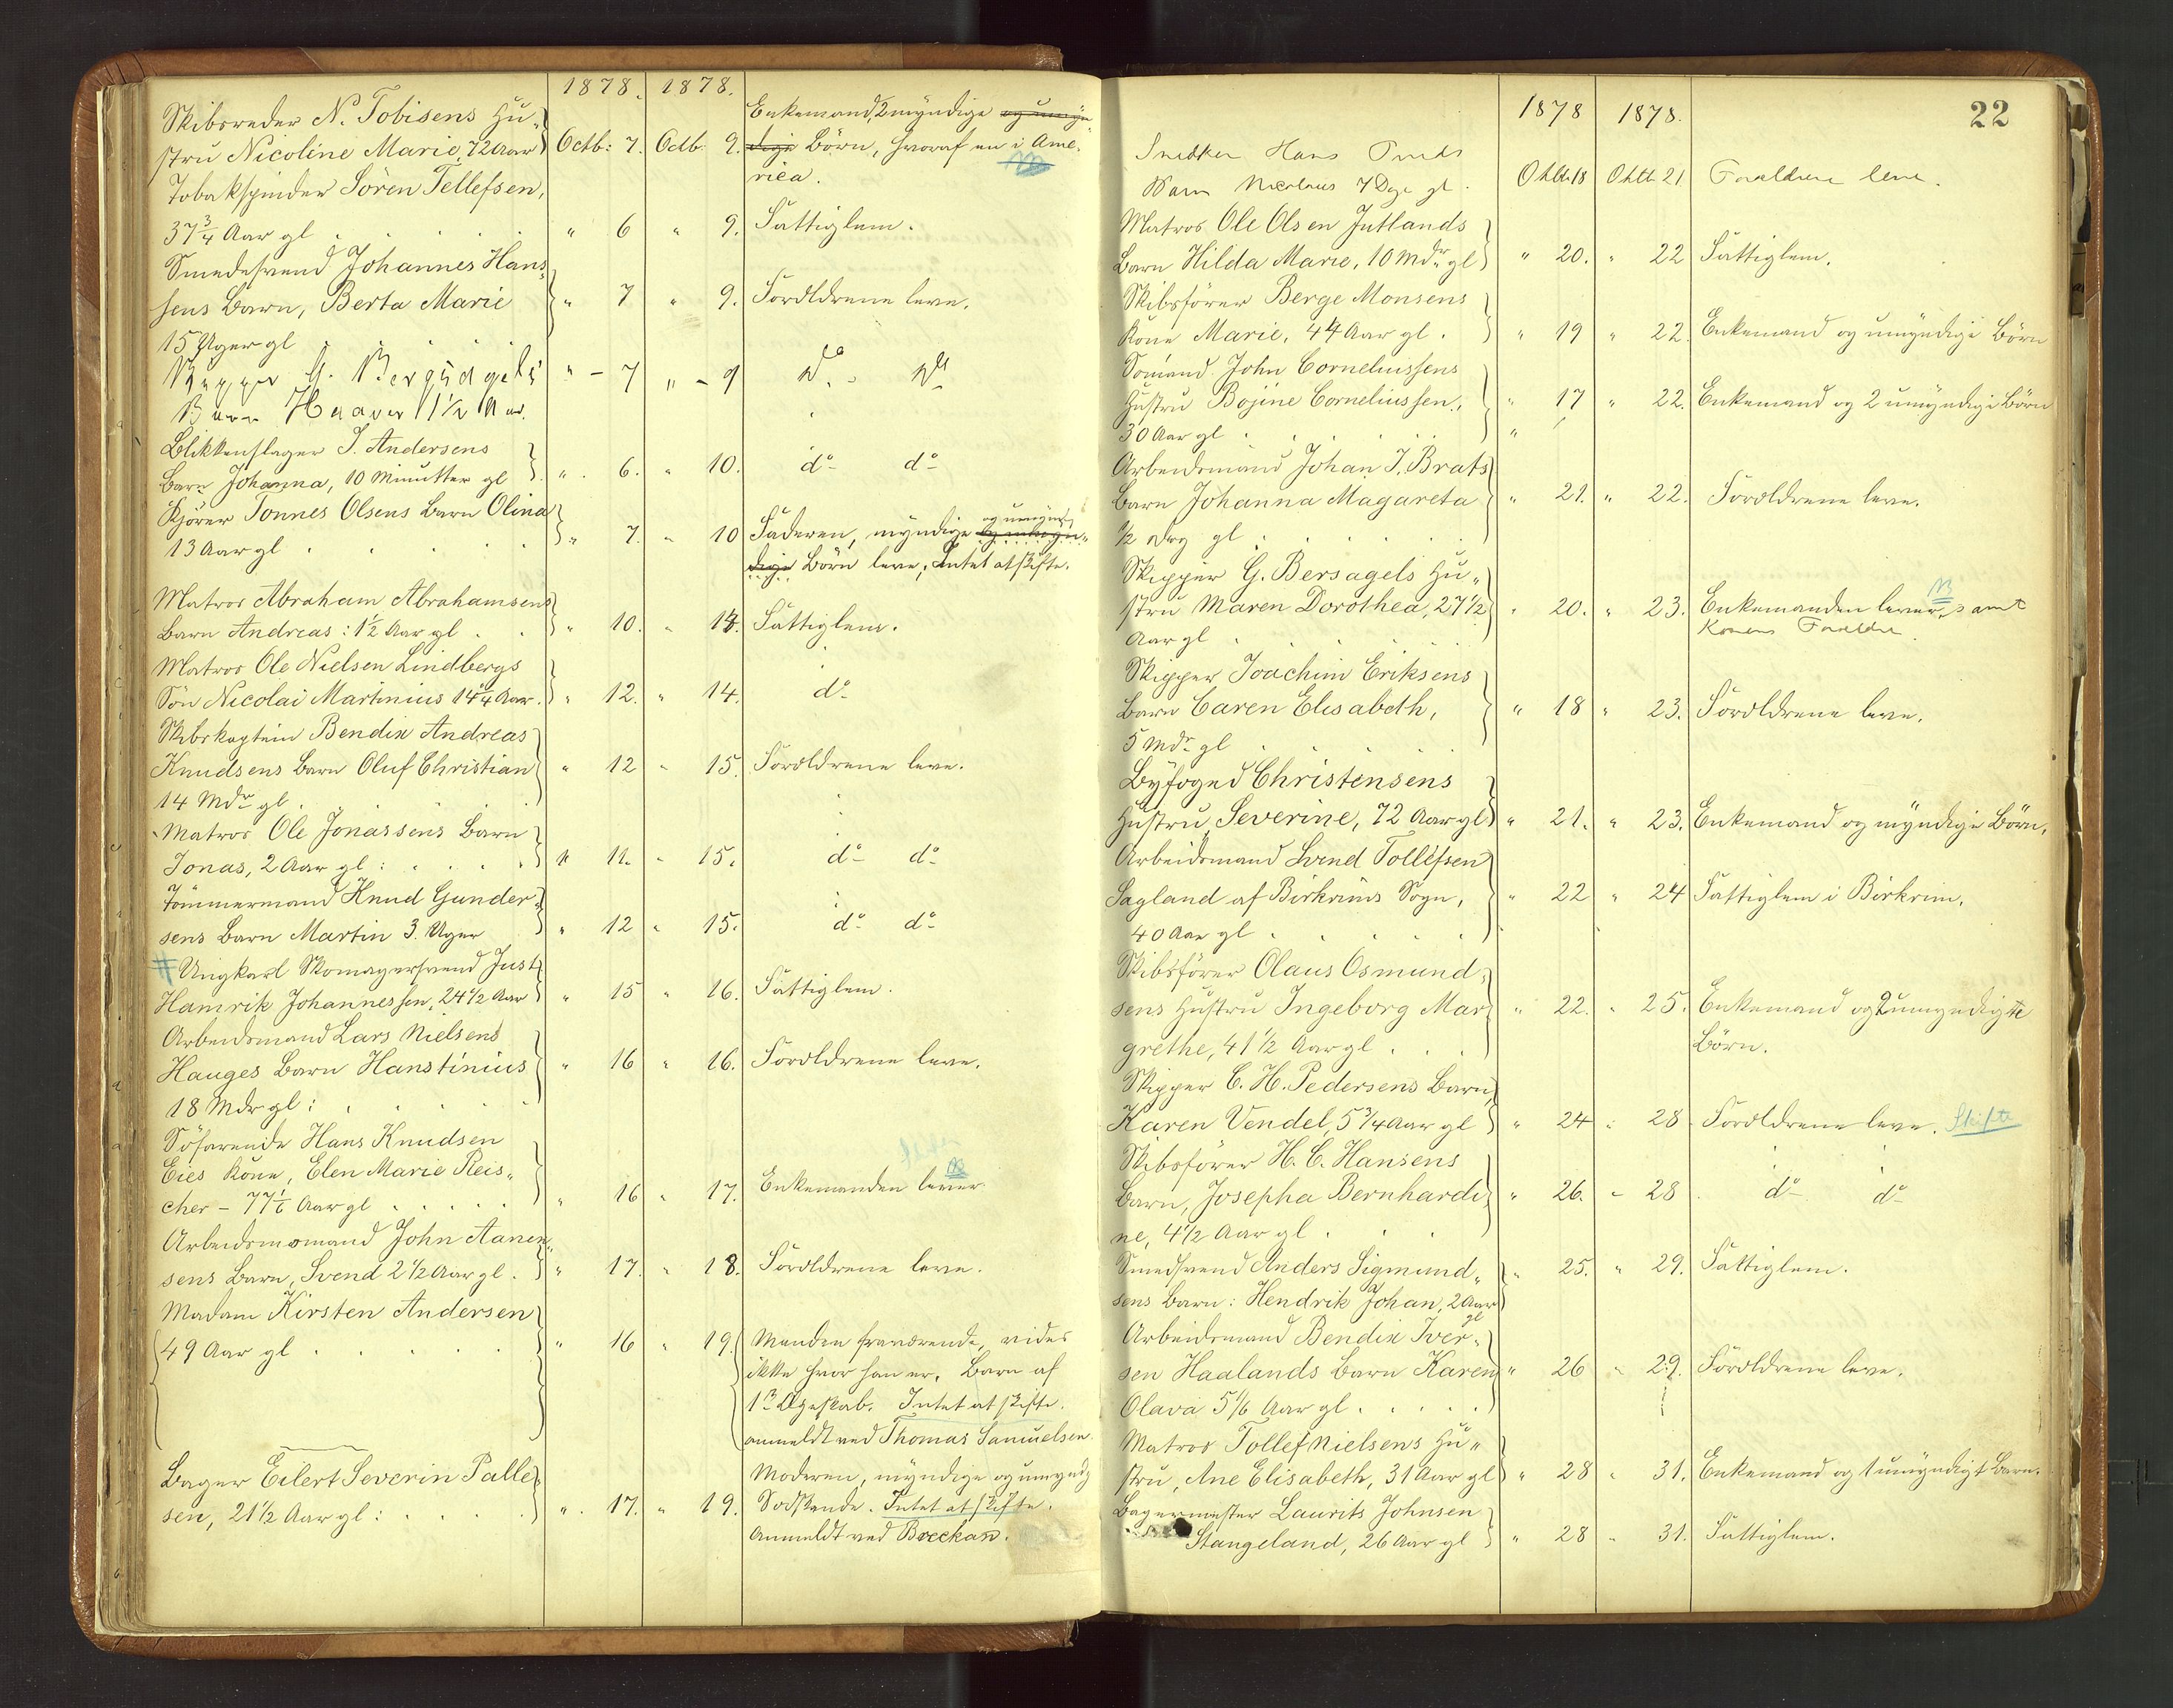 1878. 1878.
Skibsreder N. Tobisens Hu-
stru Nicoline Marie, 72 Aar Octb: 7. Octb: 9. Enkemand, 2 myndige og umyn
dige Börn, hvoraf en i Ame-
rica.
Tobakspinder Sören Tellefsen,
37 3/4 Aar gl . . . . " 6 " 9. Fattiglem.
Smedesvend Johannes Hans-
sens Barn, Berta Marie " 7 " 9. Forældrene leve.
15 Uger gl . . . .
G. " - 7 " - 9 Do. - Do
Barn 1 1/2 Aar.
Blikkenslager J. Andersens
Barn Johanna, 10 Minutter gl " 6. " 10. do- do-
Kjörer Tonnes Olsens Barn Olina
13 Aar gl . . . . " 7. " 10 Faderen, myndige og umyndige og umyn-
dige Börn leve; Intet at skifte.
Matros Abraham Abrahamsens
Barn Andreas: 1 1/2 Aar gl . . " 10. " 13. Fattiglem.
Matros Ole Nielsen Lindbergs
Sön Nicolai Martinius 14 1/4 Aar. " 12. " 14. do-
Skibskaptein Bendix Andreas
Knudsens Barn Oluf Christian " 12 " 15. Forældrene leve.
14 Mdr gl .
Matros Ole Jonassens Barn
Jonas, 2 Aar gl : . . . " 11. " 15. do- do-
Tömmermand Knud Gunder-
sens Barn Martin 3. Uger " 12 " 15. do- do-
# Ungkarl Skomagersvend Just
Hamrik Johannessen, 24 1/2 Aar " 15 " 16. Fattiglem.
Arbeidsmand Lars Nielsens
Hauges Barn Hanstinius " 16 " 16. Forældrene leve.
18 Mdr gl : . . . .
Söfarende Hans Knudsen
Eies Kone, Elen Marie Reis-
cher - 77 1/6 Aar gl . . . . " 16 " 17. Enkemanden lever
Arbeidsmomand John Aanen-
sens Barn, Svend 2 1/2 Aar gl . " 17. " 18. Forældrene leve.
Madam Kirsten Andersen
49 Aar gl . . . . " 16 " 19. Manden fraværende, vides
ikke hvor han er. Barn af
1ste Ægteskab. Intet at skifte.
anmeldt ved Thomas Samuelsen.
Bager Eilert Severin Palle- Moderen, myndige og umyndg
sen, 21 1/2 Aar gl : . . . . " 17. " 19. Sødskende. Intet at skifte.
Anmeldt ved
22
1878 1878.
Snedker Hans
Barn Nicolaus 7 Dge gl. Oktb 18 Oktb 21 Forældrene leve.
Matros Ole Olsen Jutlands
Barn Hilda Marie, 10 Mdr gl " 20. " 22 Fattiglem.
Skibsförer Berge Monsens
Kone Marie, 44 Aar gl . " 19 " 22. Enkemand og umyndige Börn
Sömand John Corneliussens
Hustru Bojine Corneliussen, " 17 " 22. Enkemand og 2 umyndige Börn
30 Aar gl . . . . "
Arbeidsmand Johan J. Brats
Barn Johanna Magareta " 21. " 22. Forældrene leve.
1/2 Dag gl . . . .
Skipper G. Bersagels Hu-
stru Maren Dorothea, 27 1/2 " 20. " 23. Enkemanden lever, samt
Aar gl . . . . Konens Forældre.
Skipper Joachim Eriksens
Barn Caren Elisabeth, " 18 " 23. Forældrene leve.
5 Mdr gl . . . .
Byfoged Christensens
Hustru Severine, 72 Aar gl " 21. " 23. Enkemand og myndige Börn.
Arbeidsmand Svend Tollefsen
Sagland af Birkrims Sogn, " 22 " 24 Fattiglem i Birkrim.
40 Aar gl . . . .
Skibsförer Olaus Osmund-
sens Hustru Ingeborg Mar- " 22. " 25. Enkemand og 2 umyndigte
grethe, 41 1/2 Aar gl . . . Börn.
Skipper C. H. Pedersens Barn,
Karen Vendel, 5 3/4 Aar gl " 24 " 28 Forældrene leve. Skifte
Skibsförer H. C. Hansens
Barn, Josepha Bernhardi- " 26. " 28 do- do-
ne, 4 1/2 Aar gl . . . .
Smedsvend Anders Sigmund- " 25. " 29. Fattiglem.
sens Barn: Hendrik Johan, 2 Aar
gl
Arbeidsmand Bendix Iver-
sen Haalands Barn Karen " 26 " 29. Forældrene leve.
Olava 5 1/6 Aar gl . . . .
Matros Tollef Nielsens Hu-
stru, Ane Elisabeth, 31 Aar gl " 28 " 31. Enkemand og 1 umyndigt Barn.
Bagermester Laurits Johnsen
Stangeland, 26 Aar gl " 28 " 31. Fattiglem.